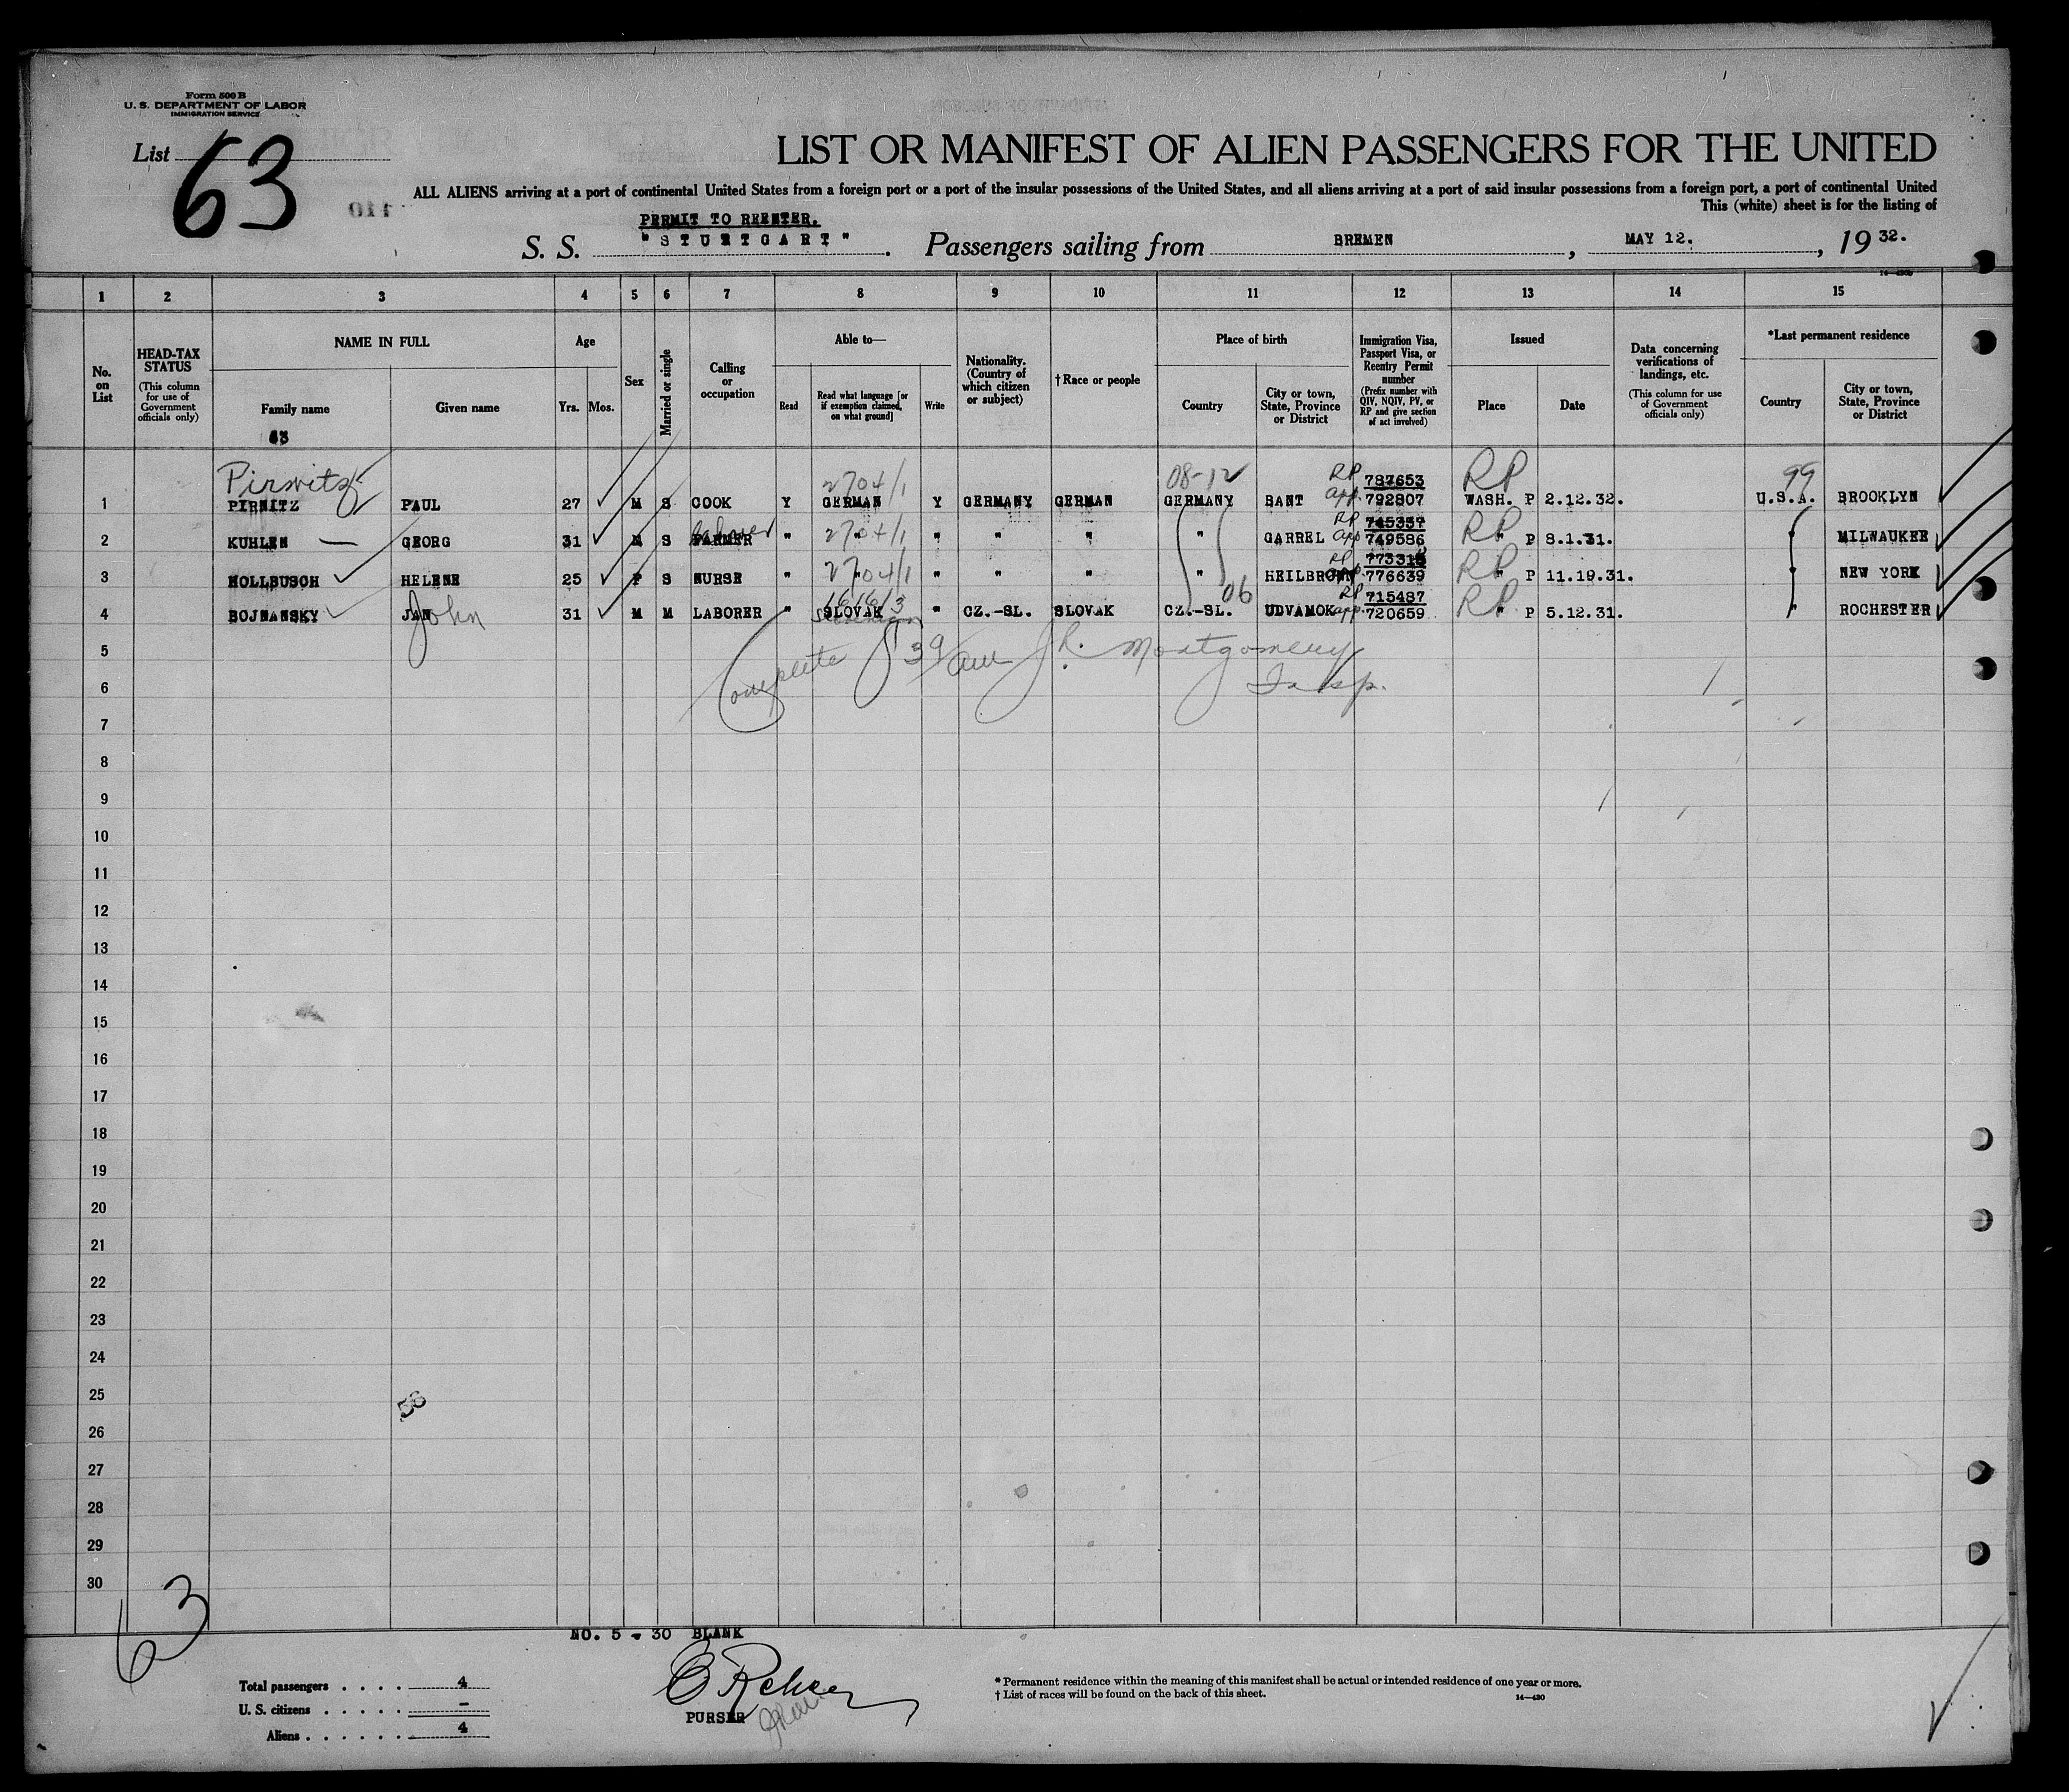 Form 500 B
U. S. DEPARTMENT OF LABOR
IMMIGRATION SERVICE
List 63
LIST OR MANIFEST OF ALIEN PASSENGERS FOR THE UNITED
ALL ALIENS arriving at a port of continental United States from a foreign port or a port of the insular possessions of the United States, and all aliens arriving at a port of said insular possessions from a foreign port, a port of continental United
This (white) sheet is for the listing of
PERMIT TO REENTER.
S. S. "STUTTGART". Passengers sailing from BREMEN, MAY 12., 19 32.
1 2 3 4 5 6 7 8 9 10 11 12 13 14 15
No. on List
HEAD-TAX STATUS (This column for use of Government officials only)
NAME IN FULL
Family name
Given name
Age
Yrs. Mos.
Sex
Married or single
Calling or occupation
Able to—
Read
Read what language [or if exemption claimed, on what ground]
Write
Nationality. (Country of which citizen or subject)
†Race or people
Place of birth
Country
City or town, State, Province or District
Immigration Visa, Passport Visa, or Reentry Permit number (Prefix number with QIV, NQIV, PV, or RP and give section of act involved)
Issued
Place
Date
Data concerning verifications of landings, etc. (This column for use of Government officials only)
*Last permanent residence
Country
City or town, State, Province or District
Pirwitz 2704/1 08-12 RP 787653 RP 99
1 PIRNITZ PAUL 27 M S COOK Y GERMAN Y GERMANY GERMAN GERMANY BANT app. 792807 WASH. P 2.12.32. U.S.A. BROOKLYN
2704/1 RP 745357 RP
2 KUHLEN GEORG 31 M S FARMER " " " " " " GARREL app 749586 " P 8.1.31. " MILWAUKEE
2704/1 RP 773316 RP
3 HOLLBUSCH HELENE 25 F S NURSE " " " " " " HEILBRONN 776639 " P 11.19.31. " NEW YORK
John 16161/3 06 RP 715487 RP
4 BOJNANSKY JAN 31 M M LABORER " SLOVAK " CZ.-SL. SLOVAK CZ.-SL. UDVAMOK app. 720659 " P 5.12.31. " ROCHESTER
5 Complete 39 R. Montgomery
6 Insp.
7
8
9
10
11
12
13
14
15
16
17
18
19
20
21
22
23
24
25
26
27
28
29
30
63
NO. 5 - 30 BLANK
Total passengers . . . . 4
U. S. citizens . . . . . –
Aliens . . . . . . 4
PURSER
* Permanent residence within the meaning of this manifest shall be actual or intended residence of one year or more.
† List of races will be found on the back of this sheet.
14—430